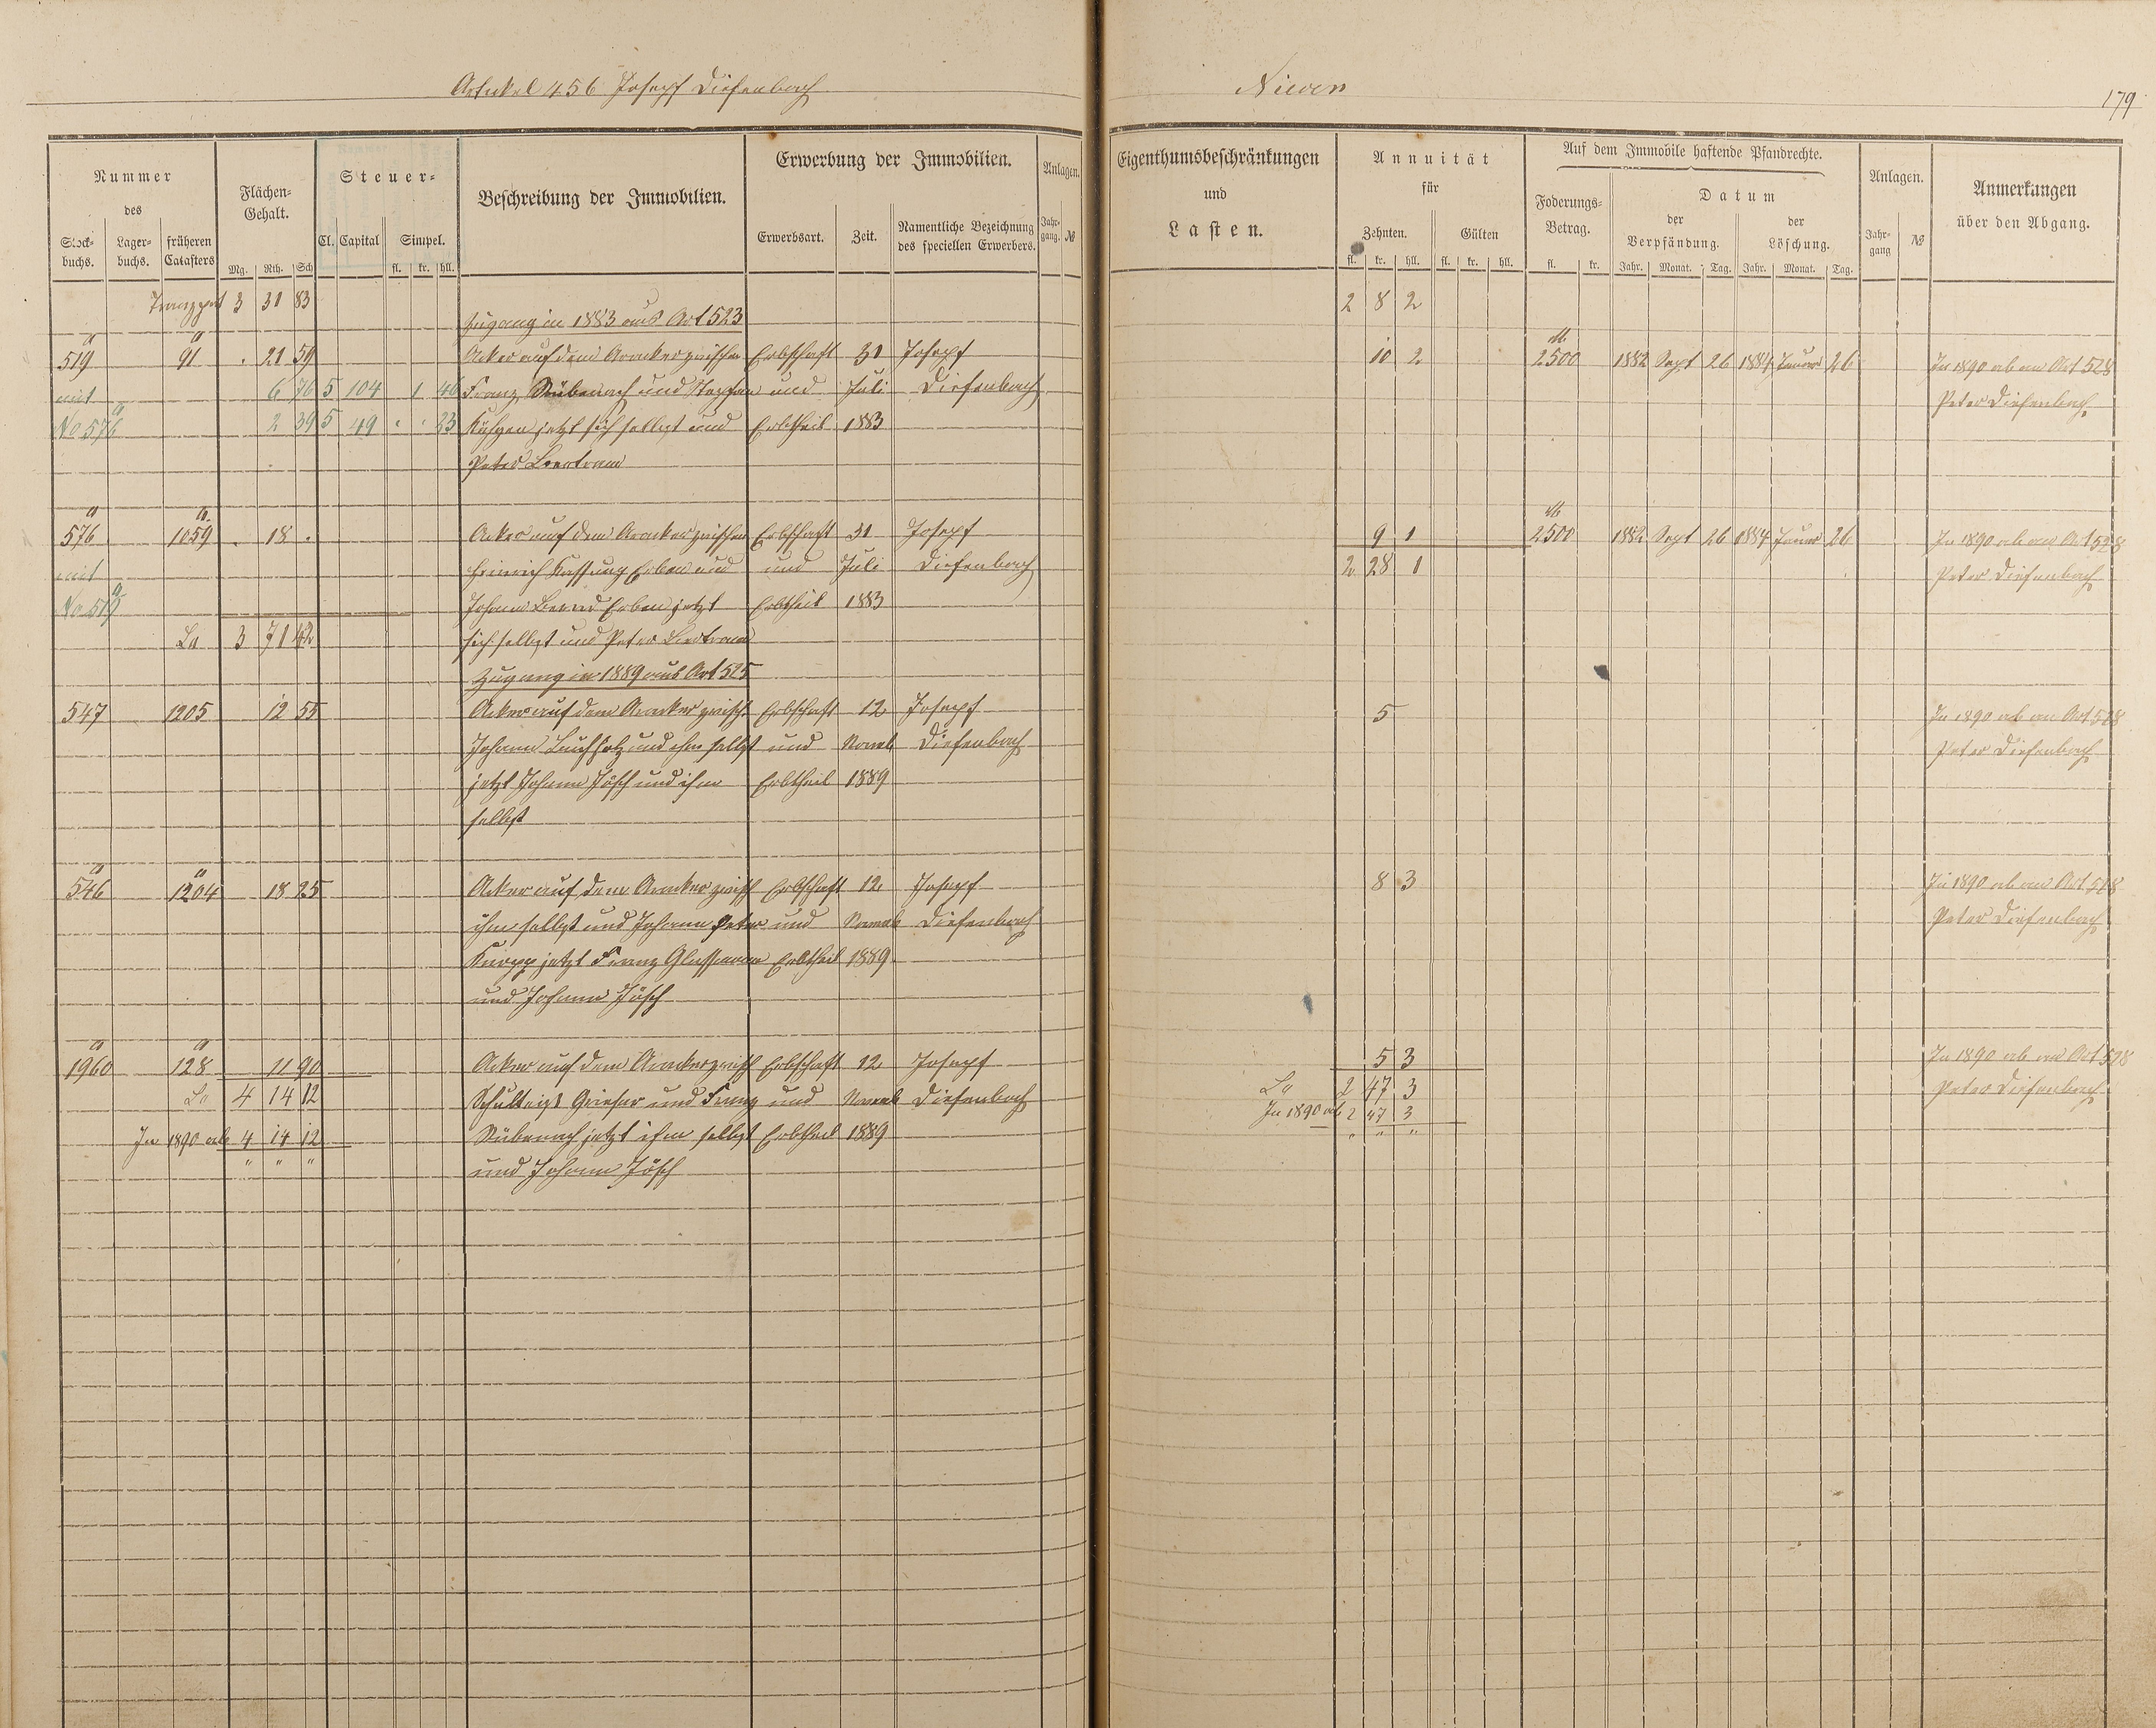 Artikel 456 Joseph Diefenbach
Nummer
des
Stock-
buchs.
Lager-
buchs.
früheren
Catasters
Flächen-
Gehalt.
Mg. Rth. Sch
Steuer-
Cl. Capital Simpel.
fl. kr. hll.
Beschreibung der Immobilien.
Erwerbung der Immobilien.
Erwerbsart. Zeit. Namentliche Bezeichnung
des speciellen Erwerbers.
Anlagen.
Jahr-
gang. №
Transport 3 31 83
Zugang in 1883 aus Art 523
a a
519 91 . 21 59 Acker auf dem Aracker zwischen Erbschaft 31 Joseph
mit 6 76 5 104 1 46 Franz Stübenach und Stephan und Juli Diefenbach
No 576 a 2 39 5 49 . . 23 jetzt sich selbst und Erbtheil 1883
Peter Bertram
a a
576 1059 . 18 . Acker auf dem Aracker zwischen Erbschaft 31 Joseph
mit Heinrich Erben und und Juli Diefenbach
No 519 a Johann Erben jetzt Erbtheil 1883
Sa 3 71 42 sich selbst und Peter Bertram
Zugang in 1889 aus Art 525
547 1205 12 55 Acker auf dem Aracker zwisch Erbschaft 12 Joseph
Johann Buchholz und ihm selbst und Novemb Diefenbach
jetzt Johann Jösch und ihm Erbtheil 1889
selbst
a a
546 1204 18 25 Acker auf dem Aracker zwisch Erbschaft 12 Joseph
ihm selbst und Johann Peter und Novemb Diefenbach
Knopp jetzt Franz Glassmann Erbtheil 1889
und Johann Jösch
a a
1960 128 11 90 Acker auf dem Aracker zwisch Erbschaft 12 Joseph
Sa 4 14 12 Schultheis und Franz und Novemb Diefenbach
In 1890 ab 4 14 12 Stübenach jetzt ihm selbst Erbtheil 1889
" " " und Johann Jösch
Niever
179
Eigenthumsbeschränkungen
und
Lasten.
Annuität
für
Zehnten. Gülten
fl. kr. hll. fl. kr. hll.
Auf dem Immobile haftende Pfandrechte.
Foderungs-
Betrag.
fl. kr.
Datum
der
Verpfändung.
der
Löschung.
Jahr. Monat. Tag. Jahr. Monat. Tag.
Anlagen.
Jahr-
gang №
Anmerkungen
über den Abgang.
2 8 2
M
10 2 2500 1882 Sept 26 1884 Januar 26 In 1890 ab an Art 528
Peter Diefenbach
M
9 1 2500 1882 Sept 26 1884 Januar 26 In 1890 ab an Art 528
2 28 1 Peter Diefenbach
5 In 1890 ab an Art 528
Peter Diefenbach
8 3 In 1890 ab an Art 528
Peter Diefenbach
5 3 In 1890 ab an Art 528
Sa 2 47 3 Peter Diefenbach
In 1890 ab 2 47 3
" " "